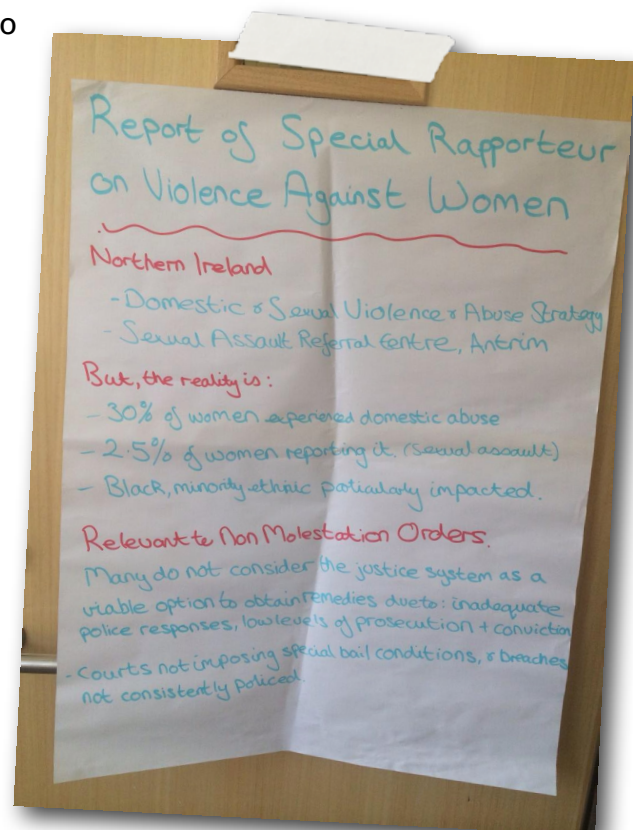 o
Report of Special Rapporteur
on Violence Against Women
Northern Ireland
- Domestic & Sexual Violence & Abuse Strategy
- Sexual Assault Referral Centre, Antrim
But, the reality is:
- 30% of women experienced domestic abuse
- 2.5% of women reporting it. (sexual assault)
- Black, minority ethnic particularly impacted.
Relevant to Non Molestation Orders.
Many do not consider the justice system as a
viable option to obtain remedies due to: inadequate
police responses, low levels of prosecution + conviction
- Courts not imposing special bail conditions, & breaches
not consistently policed.